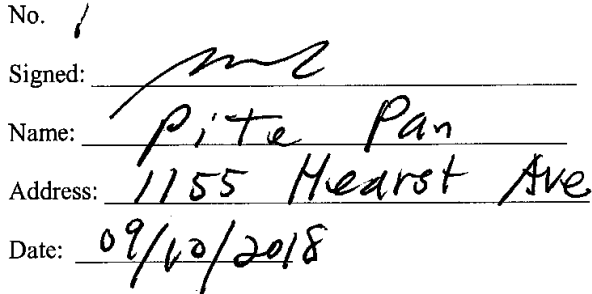 No. 1
Signed:
Name: Pite Pan
Address: 1155 Hearst Ave
Date: 09/10/2018